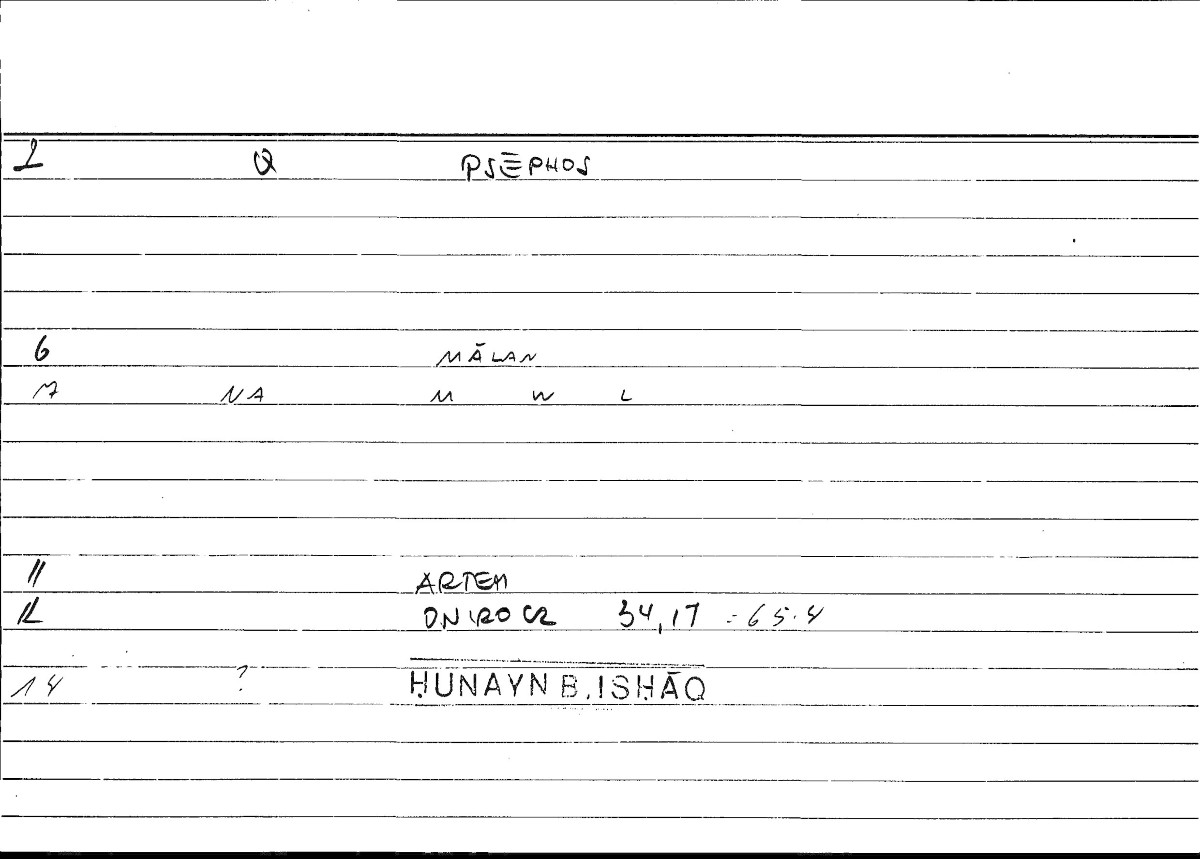 1 Q PSĒPHOS
6 MĀLAN
7 NA M W L
11 ARTEM
12 ONIROCR 34,17 - 65.4
14 ? ḤUNAYN B. ISḤĀQ